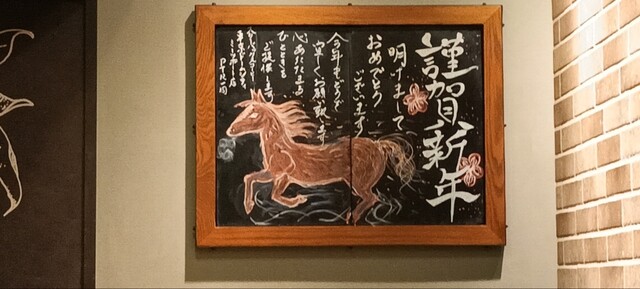 謹賀新年
明けまして
おめでとう
ございます
今年もどうぞ
宜しくお願い致します
心あたたまる
ひとときを
ご提供します